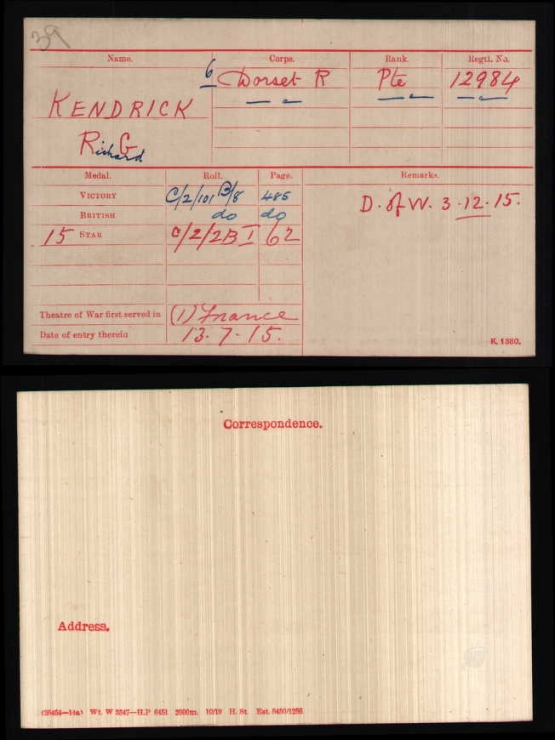 39
Name. Corps. Rank. Regtl. No.
6 Dorset R Pte 12984
KENDRICK
Richard G
Medal. Roll. Page. Remarks.
VICTORY C/2/101 B/8 485
BRITISH do do
15 STAR C/2/2B I 62
D. of W. 3.12.15.
Theatre of War first served in (1) France
Date of entry therein 13.7.15.
K. 1380.
Correspondence.
Address.
Wt. W 5347—H.P 6451 2000m. 10/19 H. St.